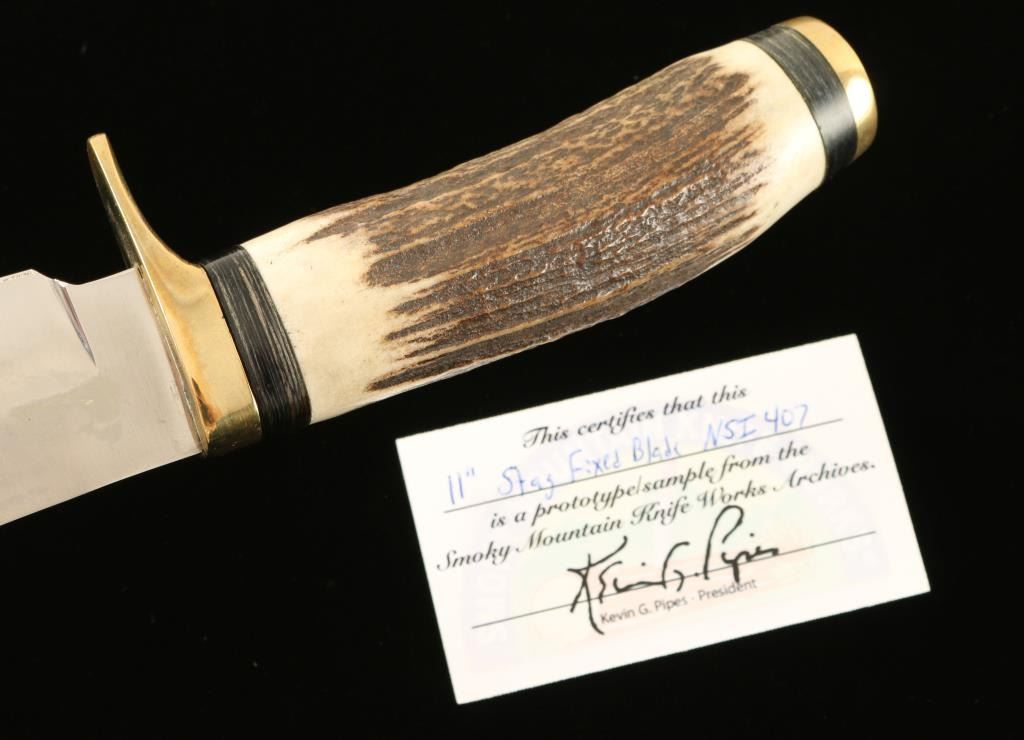 This certifies that this
11" Stag Fixed Blade NSI 407
is a prototype/sample from the
Smoky Mountain Knife Works Archives.
Kevin G. Pipes
Kevin G. Pipes - President